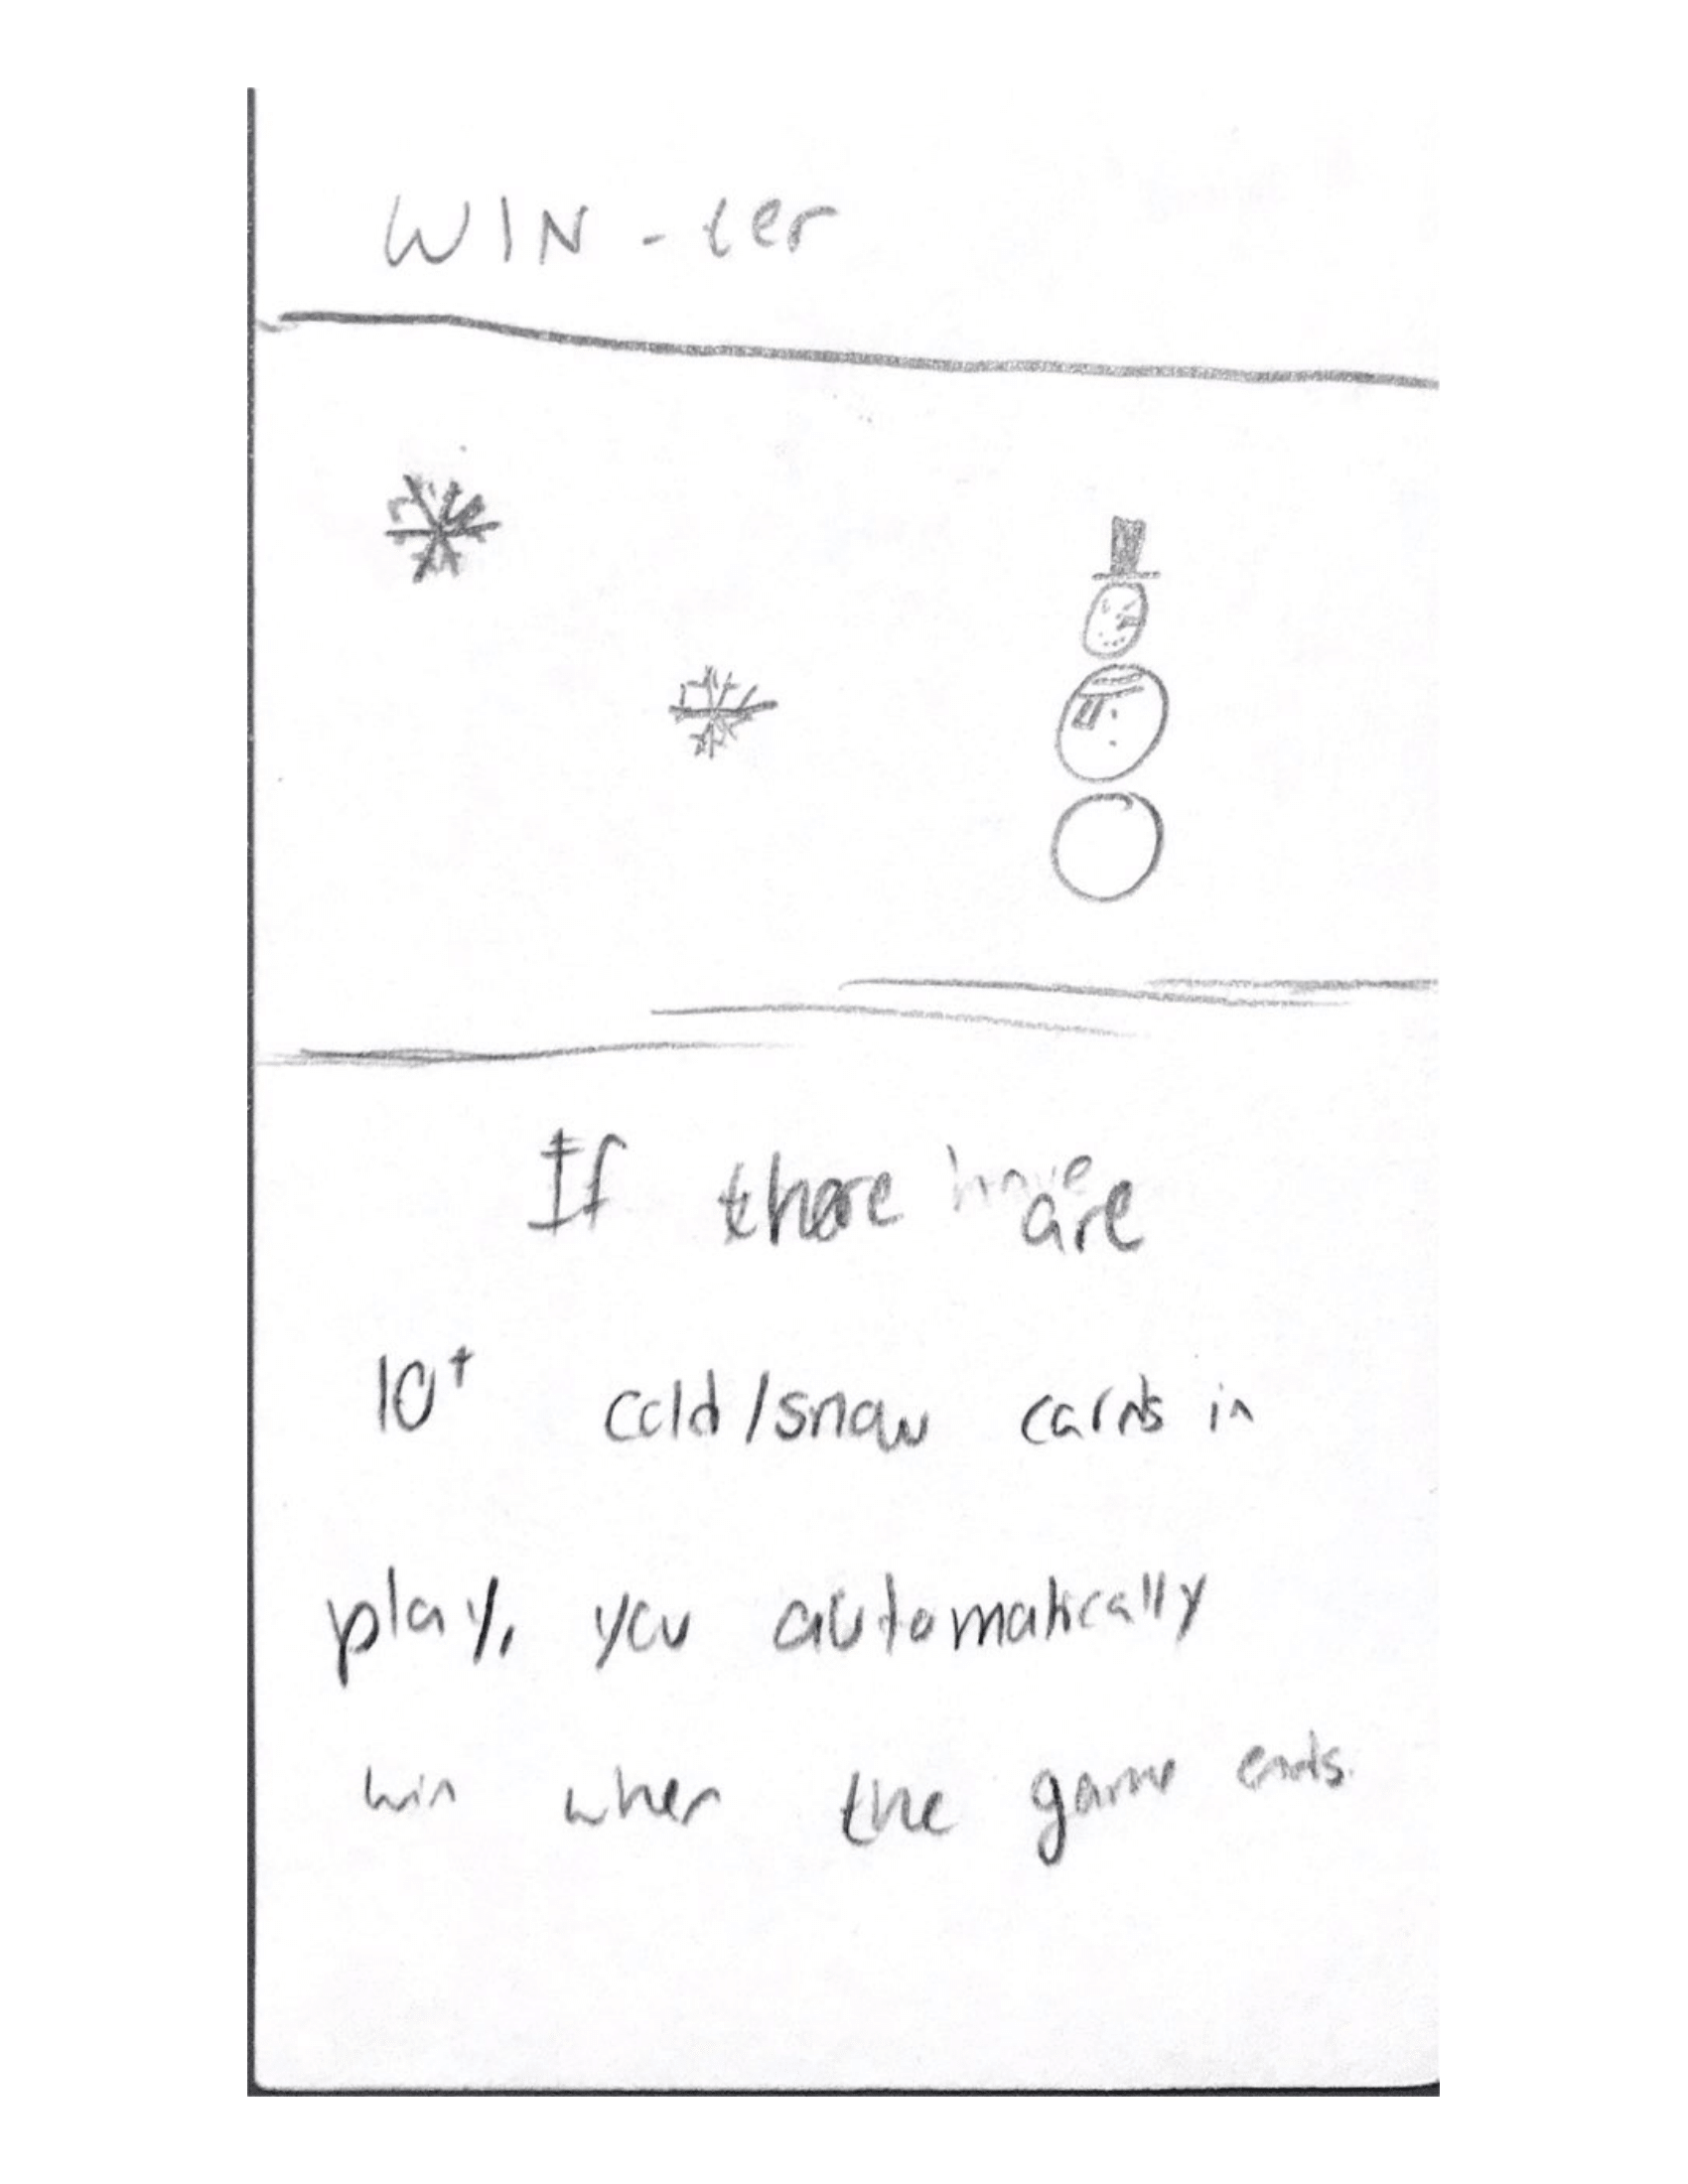 WIN-ter
If there are
10+ cold/snow cards in
play, you automatically
win when the game ends.